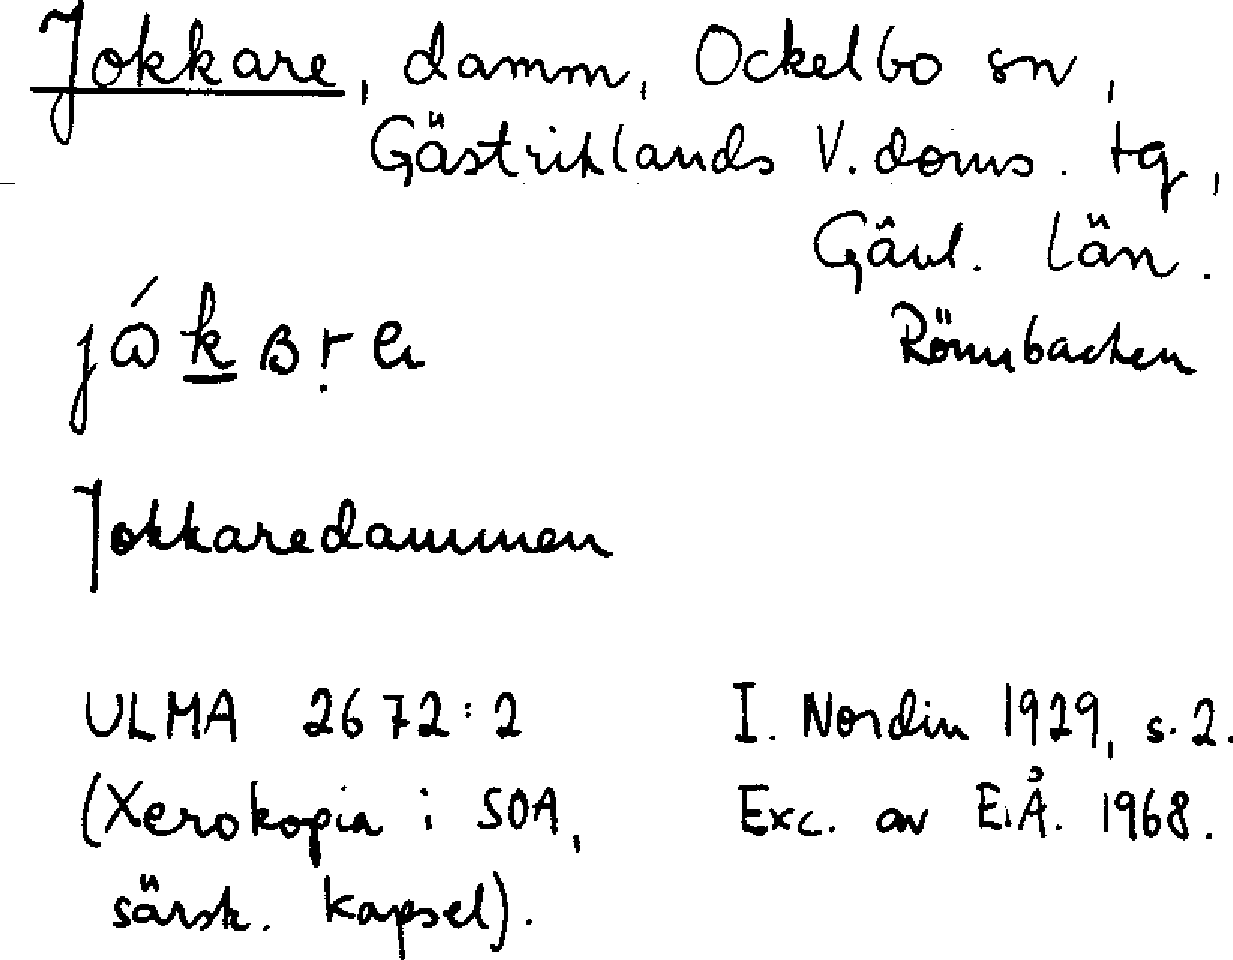 Jokkare, damm, Ockelbo sn,
Gästriklands V. doms. tg,
Gävl. län.
Rönnbacken
Jokkaredammen
ULMA 2672:2 I. Nordin 1929, s. 2.
(Xerokopia i SOA, Exc. av E.Å. 1968.
särsk. kapsel).